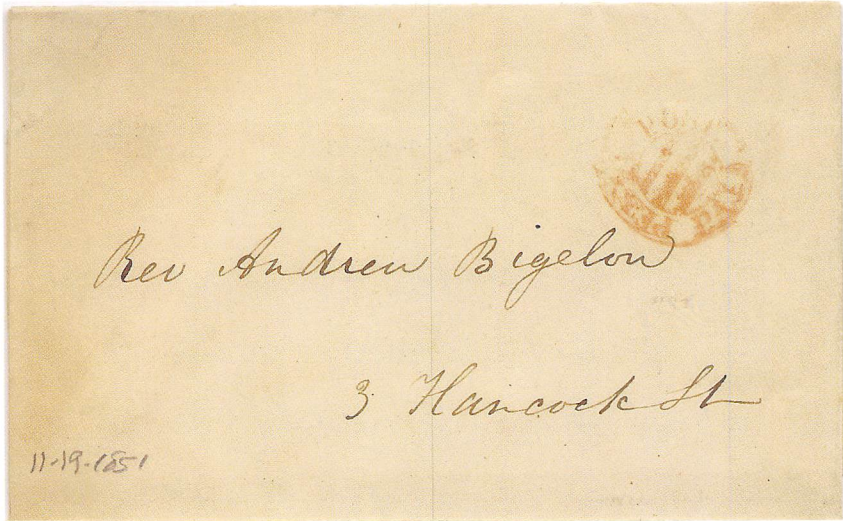 Rev Andrew Bigelow
3 Hancock St
11-19-1851